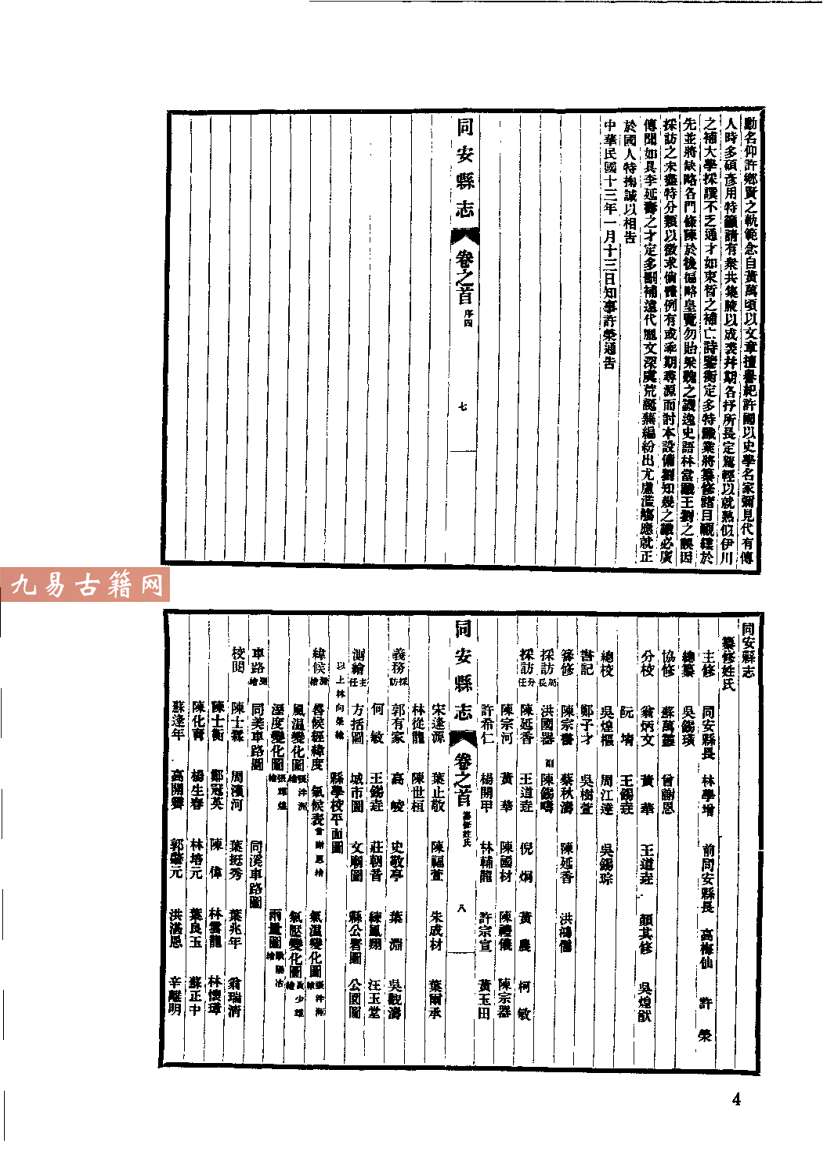 勳名仰許鄉賢之軌範念自黃萬頃以文章擅譽紀許國以史學名家彌見代有傳
人時多碩彥用特籲請有衆共集腋以成裘并期各抒所長定駕輕以就熟似伊川
之補大學採譔不乏通才如束晳之補亡詩鑒衡定多特識業將纂修諸目覼縷於
先並將缺略各門條陳於後傴略皇覽勿貽梁魏之譏逸史語林當識王劉之誤因
採訪之未盡特分類以徵求倘體例有或乖期尋源而討本設備劉知幾之識必廣
傳聞如具李延壽之才定多劉補遠代鴻文深虞荒誕蕪編紛出尤慮濫觴應就正
於國人特掬誠以相告
中華民國十三年一月十三日知事許榮通告
同安縣志 卷之首 序四 七
九易古籍网
同安縣志
纂修姓氏
主修 同安縣長 林學增 前同安縣長 高梅仙 許榮
總纂 吳錫璜
協修 蘇萬靈 曾謝恩
分校 翁炳文 黃華 王道垚 顏其修 吳煌猷
阮堉 王錫垚
總校 吳煌樞 周江達 吳錫琮
書記 鄭子才 吳樹萱
篆修 陳宗書 蔡秋濤 陳延香 洪鴻儒
採訪局長 洪國器 副 陳錫疇
採訪分任 陳延香 王道垚 倪炯 黃農 柯敏
陳宗河 黃華 陳國材 陳禮儀 陳宗器
許希仁 楊開甲 林輔龍 許宗宣 黃玉田
同安縣志 卷之首 纂修姓氏 八
宋逢源 葉止敬 陳福萱 朱成材 葉爾承
林從龍 陳世桓
義務採訪 郭有家 高崚 史敬亭 葉淵 吳觀濤
何敏 王錫垚 莊朝晋 練鳳翔 汪玉堂
測繪主任 方括圖 城市圖 文廟圖 縣公署圖 公園圖
以上林向榮繪 縣學校平面圖
緯候測繪 晷候經緯度 氣候表曾謝恩繪 氣溫變化圖
風溫變化圖 氣壓變化圖
溼度變化圖 雨量圖
車路測繪 同美車路圖 同溪車路圖
校閱 陳士霖 周漢河 葉挺秀 葉兆年 翁瑞清
陳士衡 鄭冠英 陳偉 林雲龍 林懷璋
陳化育 楊生春 林培元 葉良玉 蘇正中
蘇逢年 高開霽 郭馨元 洪湛恩 辛耀明
4